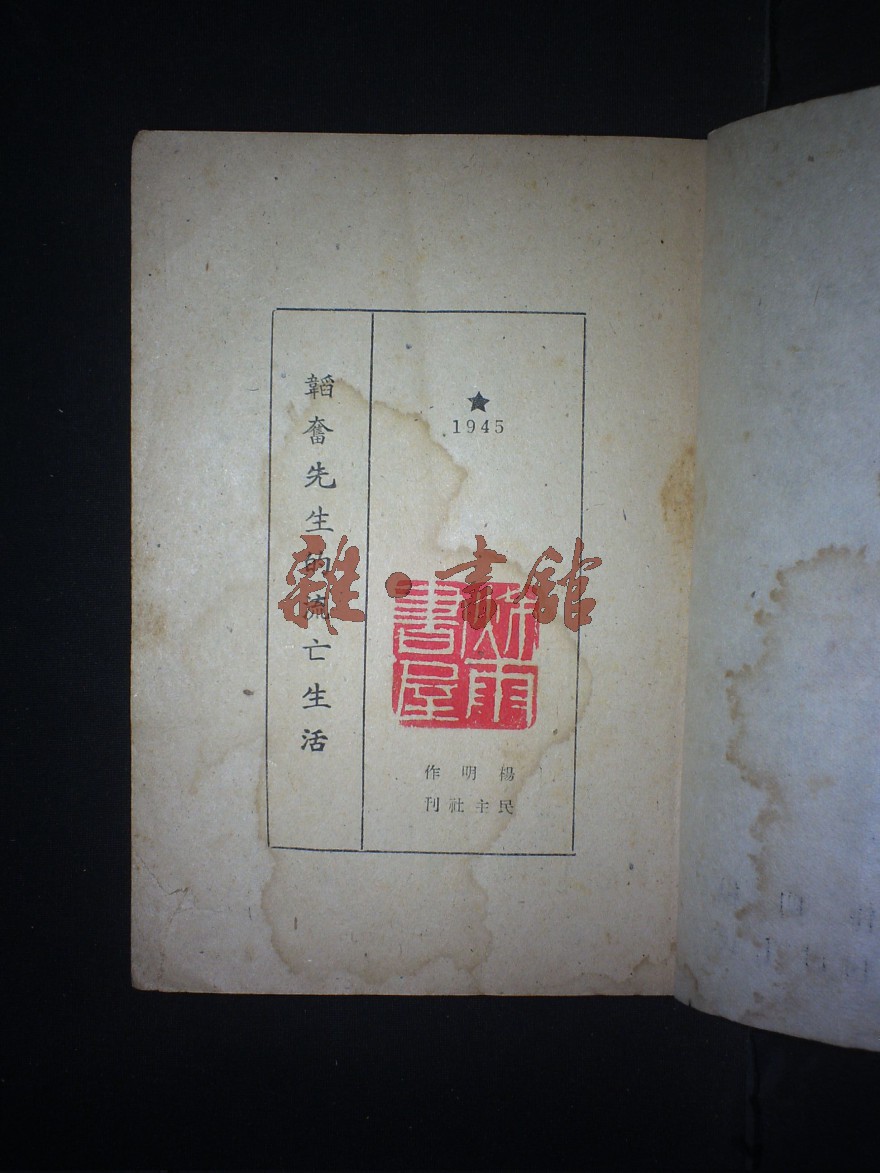 韜奮先生的流亡生活
★
1945
雨
書屋
楊明作
民主社刊
雜·書館